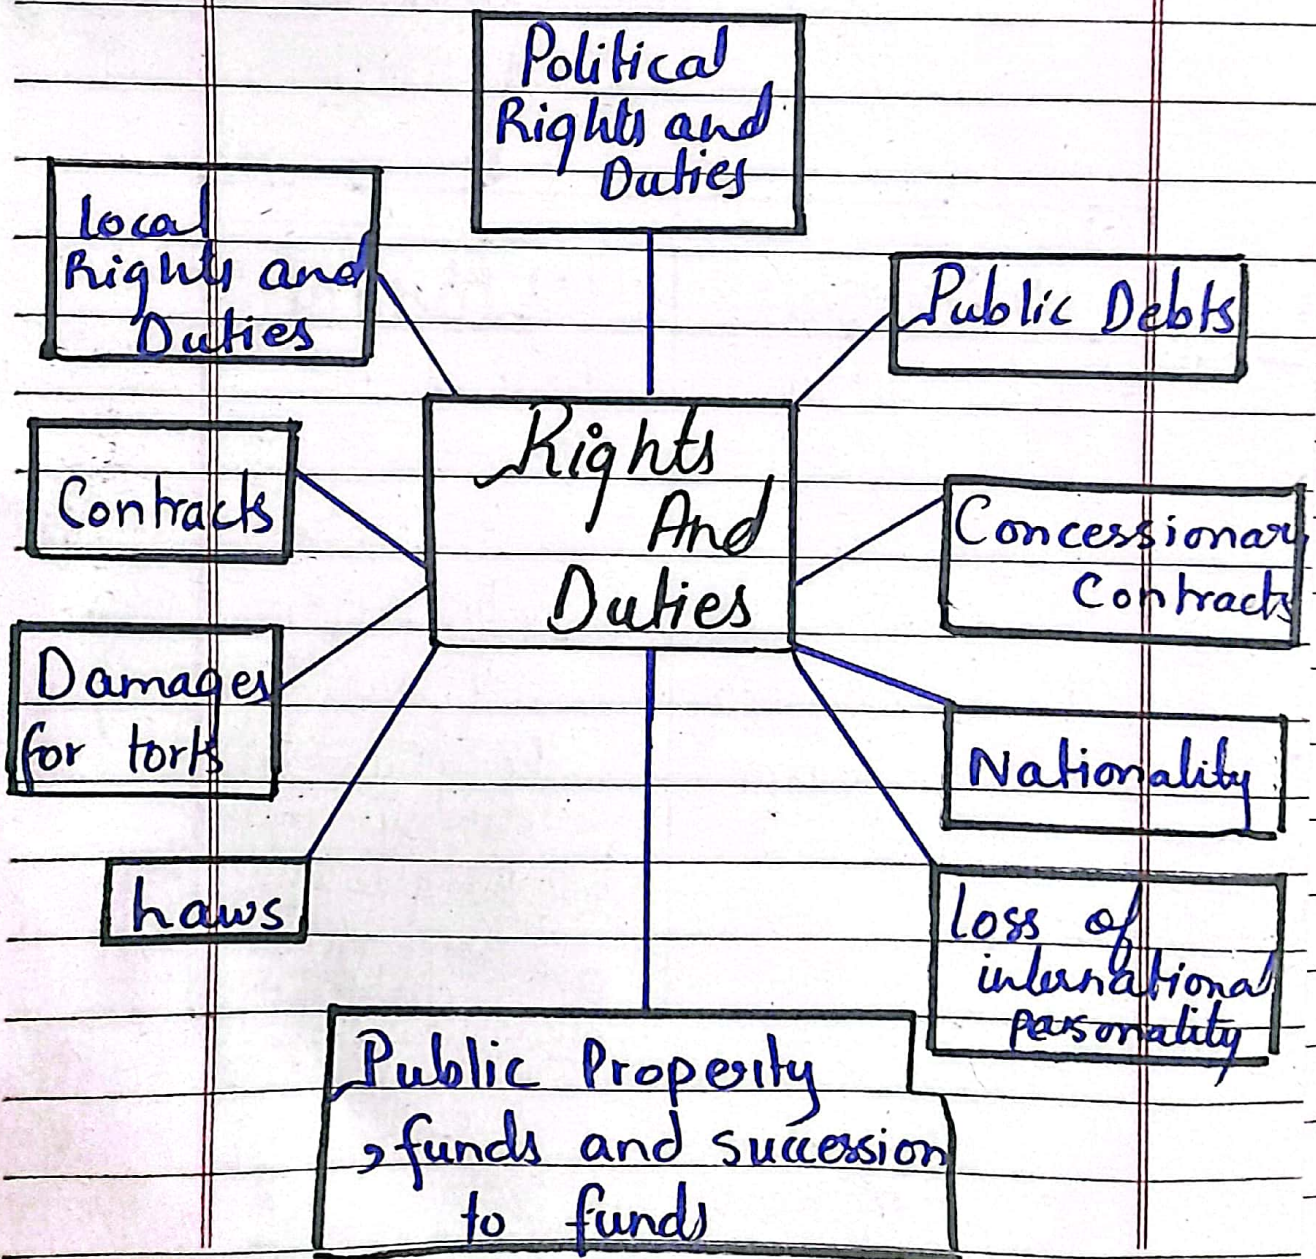 Political
Rights and
Duties
Local
Rights and
Duties
Public Debts
Rights
And
Duties
Contracts
Concessionary
Contracts
Damages
for torts
Nationality
Laws
Loss of
international
personality
Public Property
, funds and succession
to funds